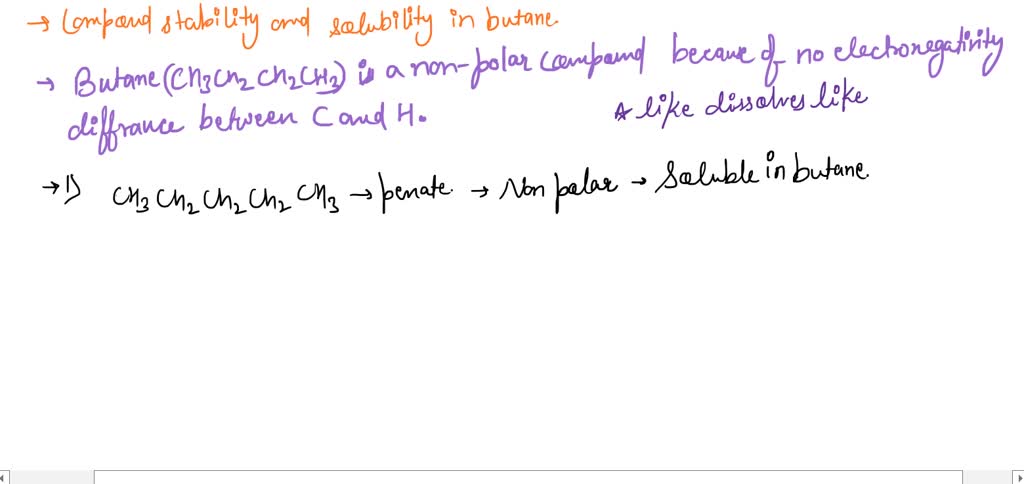 → Compound stability and solubility in butane.
→ Butane (CH3CH2CH2CH3) is a non-polar compound because of no electronegativity
diffrance between C and H. * like dissolves like
→ 1) CH3 CH2 CH2 CH2 CH3 → penate. → Non polar → Soluble in butane.